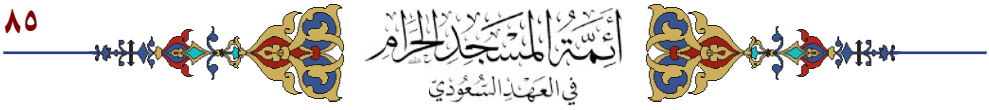 ٨٥
أَئِمَّةُ المَسْجِدِ الحَرَامِ
فِي العَهْدِ السُّعُودِيّ